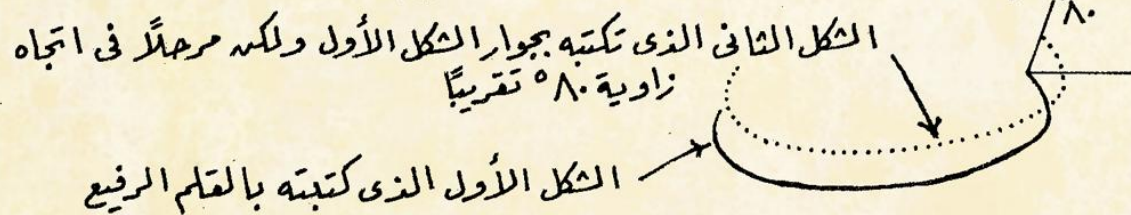 ٨٠
الشكل الثانى الذى تكتبه بجوار الشكل الأول ولكن مرحلاً فى اتجاه
زاوية ٨٠° تقريبًا
الشكل الأول الذى كتبته بالقلم الرفيع